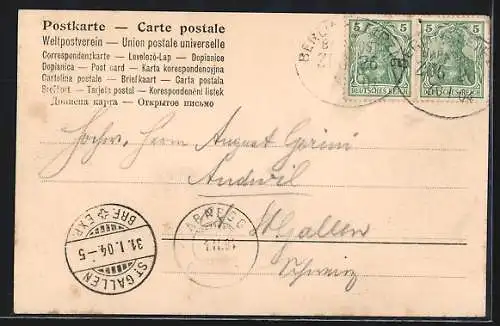 Postkarte — Carte postale
Weltpostverein — Union postale universelle
Correspondenzkarte — Levelező-Lap — Dopisnice
Dopisnica — Post card — Karta korespondencyjna
Cartolina postale — Briefkaart — Carta postala
Brefkort — Tarjeta postal — Korespondenční lístek
Дописна карта — Открытое письмо
5 5 5 5
DEUTSCHES REICH DEUTSCHES REICH
Hochw. Herrn August Gerini
Andwil
St Gallen
Schweiz
ARNEGG
BRF. EXP.
31.I.04.-5
ST. GALLEN